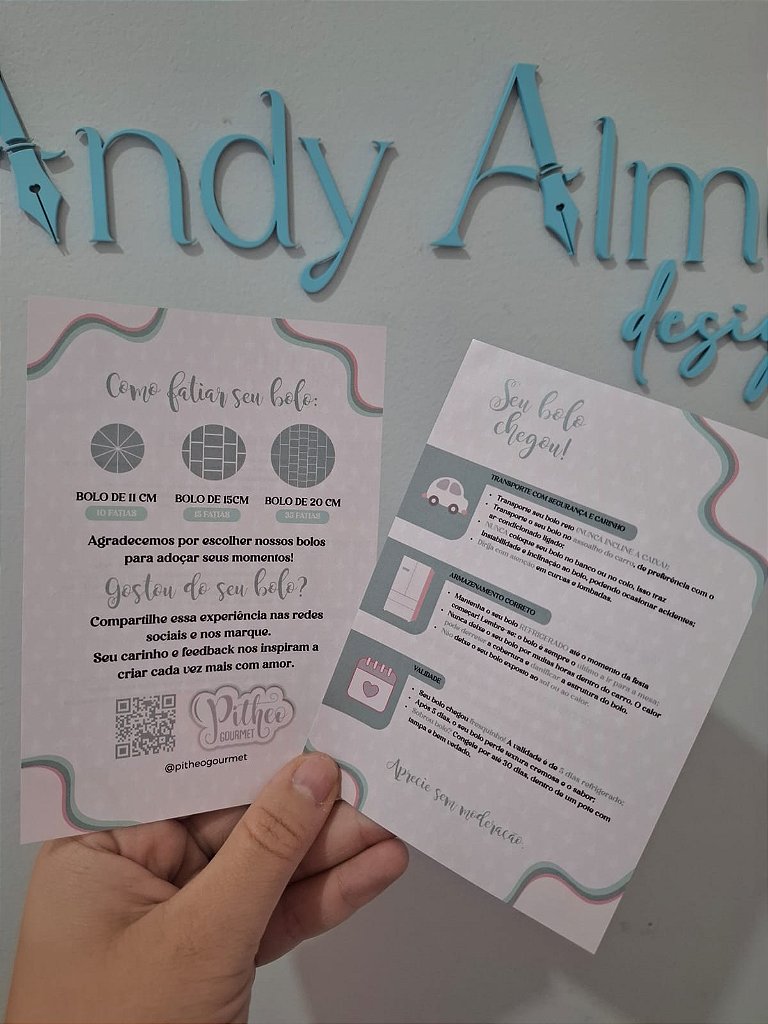 Andy Alm
desig
Como fatiar seu bolo:
BOLO DE 11 CM
BOLO DE 15CM
BOLO DE 20 CM
10 FATIAS
15 FATIAS
35 FATIAS
Agradecemos por escolher nossos bolos
para adoçar seus momentos!
Gostou do seu bolo?
Compartilhe essa experiência nas redes
sociais e nos marque.
Seu carinho e feedback nos inspiram a
criar cada vez mais com amor.
Pitheo
GOURMET
@pitheogourmet
Seu bolo
chegou!
TRANSPORTE COM SEGURANÇA E CARINHO
• Transporte seu bolo reto (NUNCA INCLINE A CAIXA);
• Transporte o seu bolo no assoalho do carro, de preferência com o
ar condicionado ligado;
• NUNCA coloque seu bolo no banco ou no colo, isso traz
instabilidade e inclinação ao bolo, podendo ocasionar acidentes;
• Dirija com atenção em curvas e lombadas.
ARMAZENAMENTO CORRETO
• Mantenha o seu bolo REFRIGERADO até o momento da festa
começar! Lembre-se: o bolo é sempre o último a ir para a mesa;
• Nunca deixe o seu bolo por muitas horas dentro do carro. O calor
pode derreter a cobertura e danificar a estrutura do bolo.
• Não deixe o seu bolo exposto ao sol ou ao calor.
VALIDADE
• Seu bolo chegou fresquinho! A validade é de 5 dias refrigerado;
• Após 5 dias, o seu bolo perde textura cremosa e o sabor;
• Sobrou bolo? Congele por até 30 dias, dentro de um pote com
tampa e bem vedado.
Aprecie sem moderação.